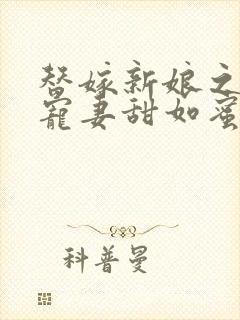 替嫁新娘之
宠妻甜如蜜
科普曼